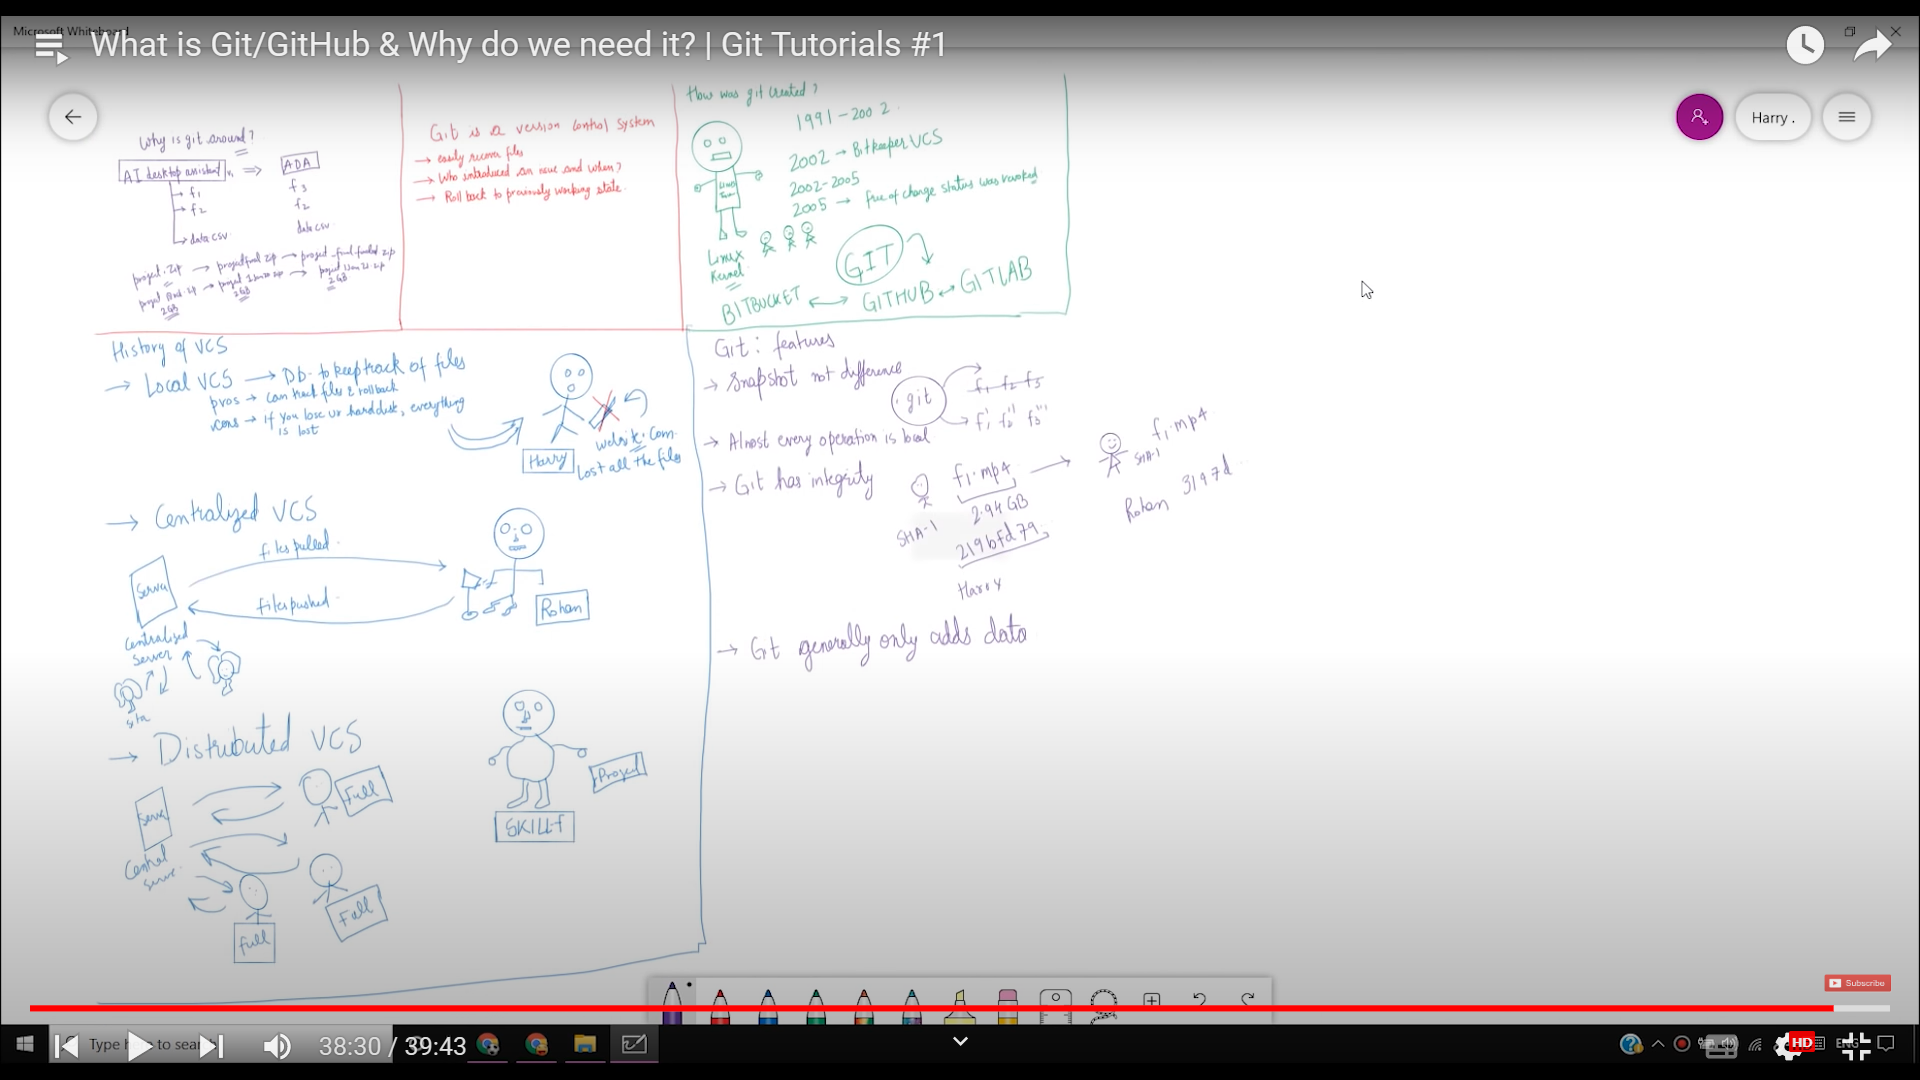 Microsoft Whiteboard
What is Git/GitHub & Why do we need it? | Git Tutorials #1
Harry .
Why is git around?
AI desktop assistant v1 ⇒ ADA
→ f1
→ f2
→ data csv
f3
f2
data csv
project.zip → projectfinal zip → project_final_funded zip
2GB
2GB
2GB
Git is a version control system
→ easily recover files
→ Who introduced an issue and when?
→ Roll back to previously working state.
How was git created?
1991-2002
2002 → Bitkeeper VCS
2002-2005
2005 → free of charge status was revoked
Linux
Kernel
GIT
BITBUCKET ↔ GITHUB ↔ GITLAB
History of VCS
→ Local VCS → Db to keep track of files
pros → can track files & rollback
cons → if you lose ur hard disk, everything
is lost
Harry
website.com
Lost all the files
→ Centralized VCS
files pulled
files pushed
Server
Centralised
Server
Rohan
→ Distributed VCS
Full
Server
Central
Full
Full
Project
SKILLF
Git: features
→ Snapshot not difference
git
f1 f2 f3
f1' f2'' f3'''
→ Almost every operation is local
→ Git has integrity
f1.mp4
2.94 GB
SHA-1
219bfd79
Harry
f1.mp4
SHA-1
Rohan 3197d
→ Git generally only adds data
Subscribe
Type here to search
38:30 / 39:43
HD
ENG